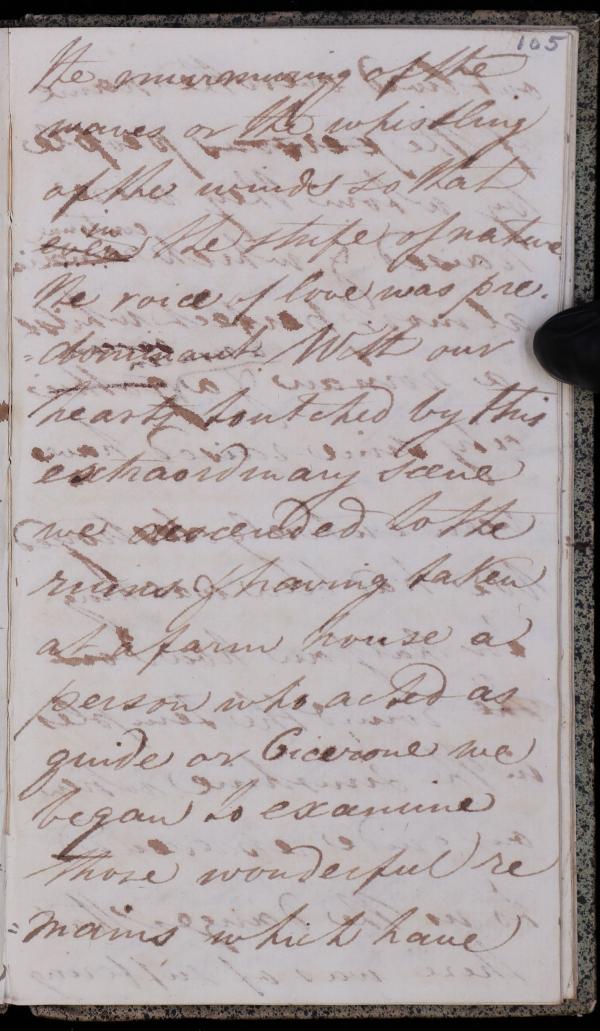 105
the murmuring of the
waves or the whistling
of the winds so that
in
even the strife of nature
the voice of love was pre-
=dominant. With our
hearts toutched by this
extraordinary scene
we descended to the
ruins & having taken
at a farm house a
person who acted as
guide or Cicerone we
began to examine
those wonderful re
=mains which have